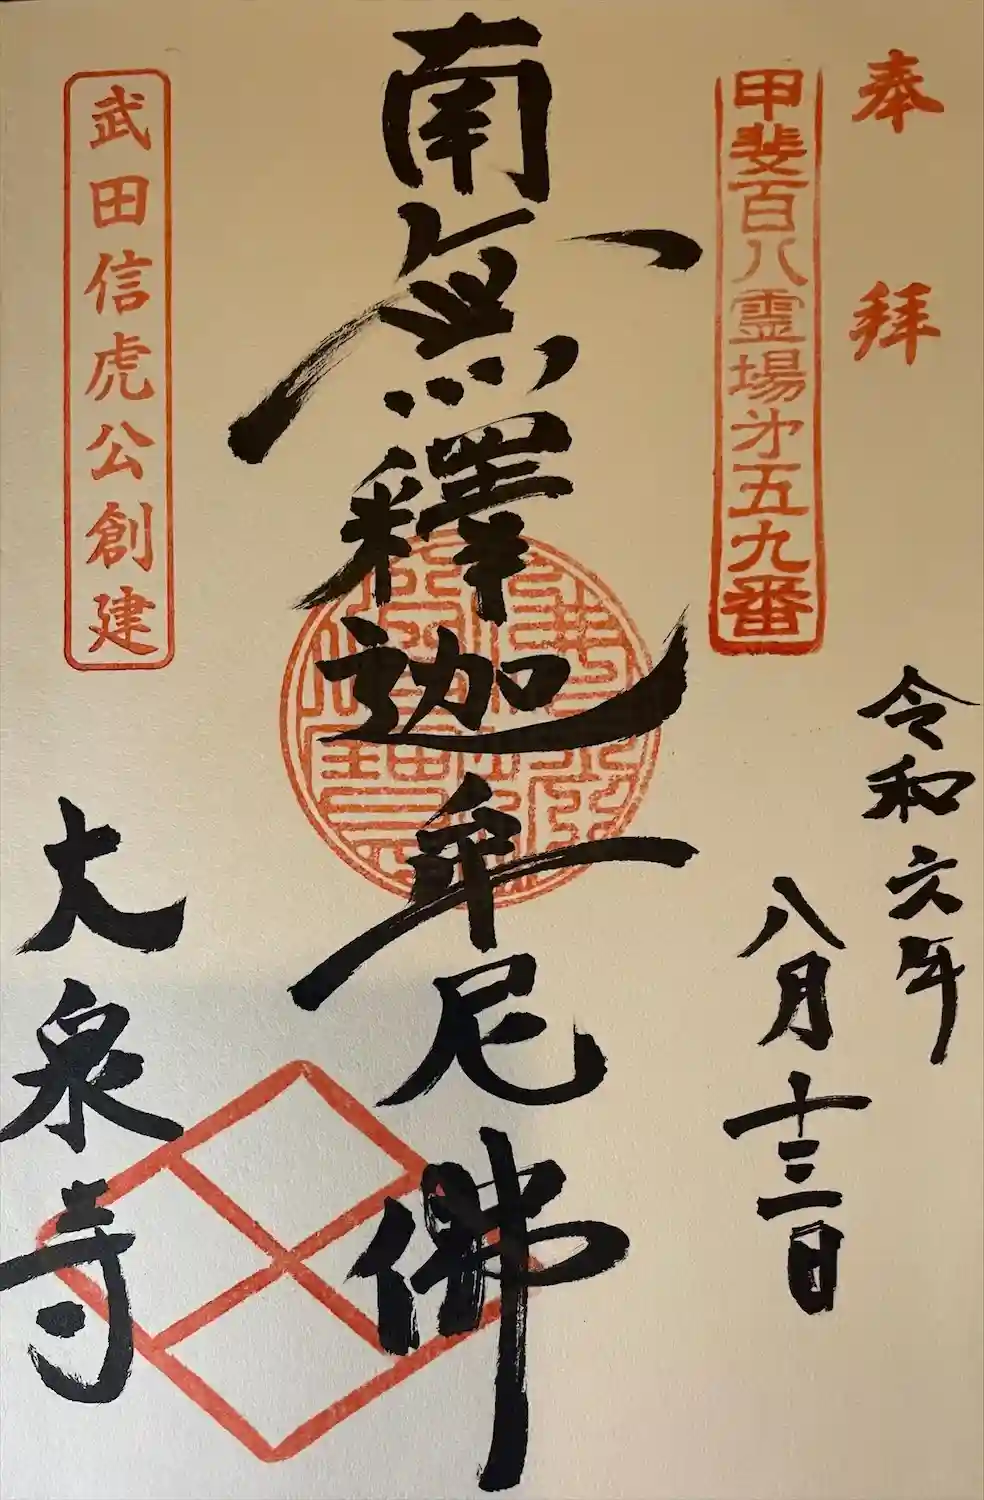 奉拜
甲斐百八霊場㐧五九番
令和六年
八月十三日
南無釋迦牟尼佛
武田信虎公創建
大泉寺